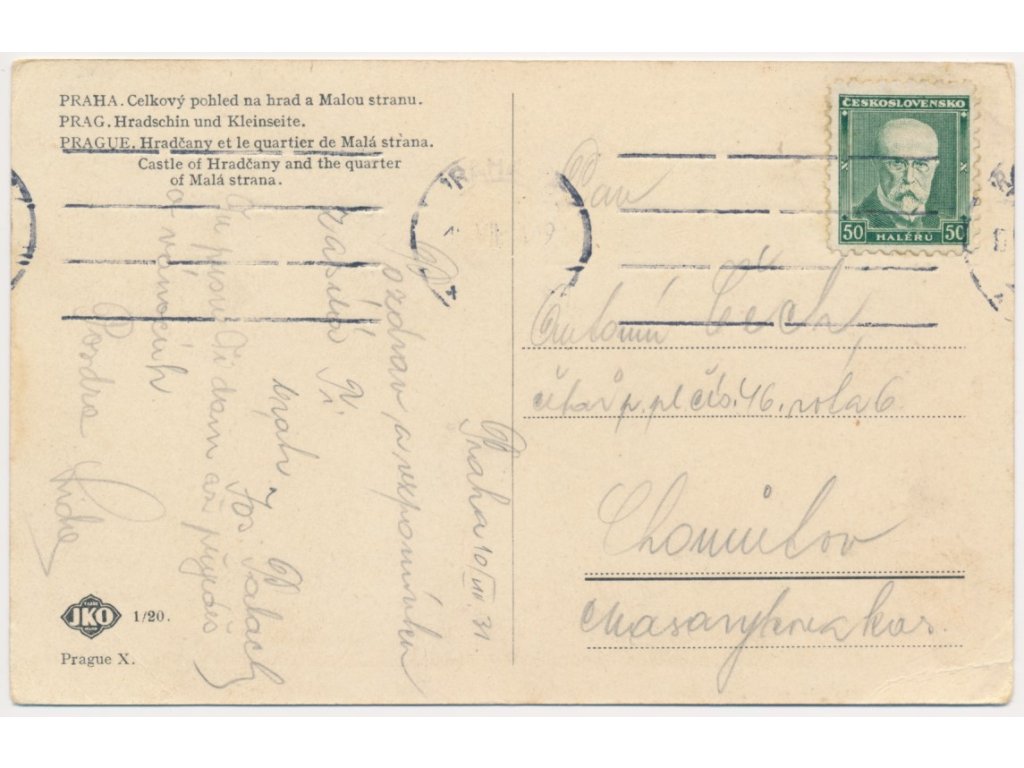 PRAHA. Celkový pohled na hrad a Malou stranu.
PRAG. Hradschin und Kleinseite.
PRAGUE. Hradčany et le quartier de Malá strana.
Castle of Hradčany and the quarter
of Malá strana.
ČESKOSLOVENSKO
50 50
HALÉŘŮ
Pan
Antonín Čech,
p. pl. čís. 46. rota 6.
Chomutov
Masarykova kas.
Praha 10/VIII. 31
Pozdrav a vzpomínku
zasílá Ti
Jos. Palach
Ti dám až přijedeš
o vánocích.
JKO
1/20.
Prague X.